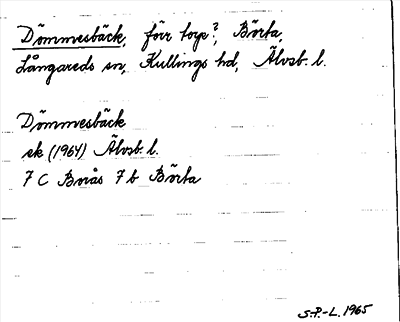 Dömmesbäck, förr torp?, Börta,
Långareds sn, Kullings hd, Älvsb. l.
Dömmesbäck
ek (1964) Älvsb. l.
7 C Borås 7 b Börta
S.-P.-L. 1965